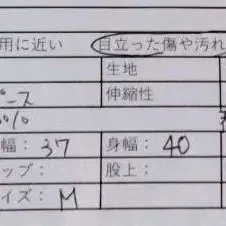 用に近い 目立った傷や汚れ
生地
ピース 伸縮性
0%
幅： 37 身幅： 40
ップ： 股上：
イズ： M